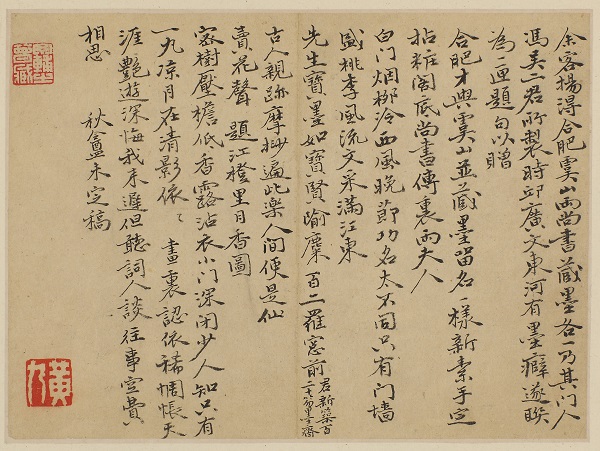 余客揚得合肥虞山兩尚書藏墨各一乃其門人
馮吳二君所製時邱廣文東河有墨癖遂聯
為一匣題句以贈
合肥才與虞山並藏墨留名一樣新素手定
拈粧閣底尚書傳裏兩夫人
白门烟柳冷西風晚節功名太不同只有门墙
盛桃李風流文采滿江東
先生寶墨如寶賢隃麋百二羅窓前君新築百
二十笏墨齋
古人親跡摩挲遍此樂人間便是仙
賣花聲 題江橙里月香圖
密樹壓檐低香露沾衣小门深闭少人知只有
一丸凉月在清影依〻 畫裏認依稀惆悵天
涯艷遊深悔我来遲但聽詞人談往事空費
相思 秋盦未定稿
黃九